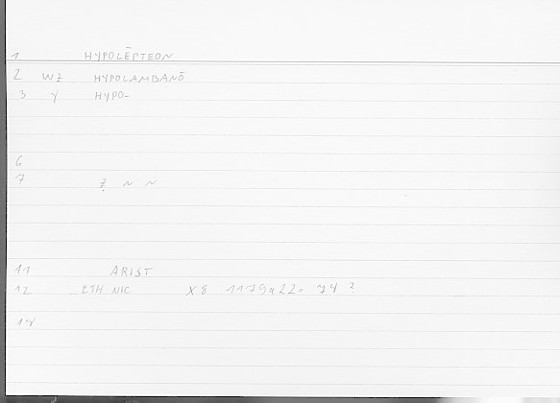 1 HYPOLĒPTEON
2 WZ HYPOLAMBANŌ
3 Y HYPO-
6
7 Ẓ N N
11 ARIST
12 ETH NIC X 8 1179a22. ?
14